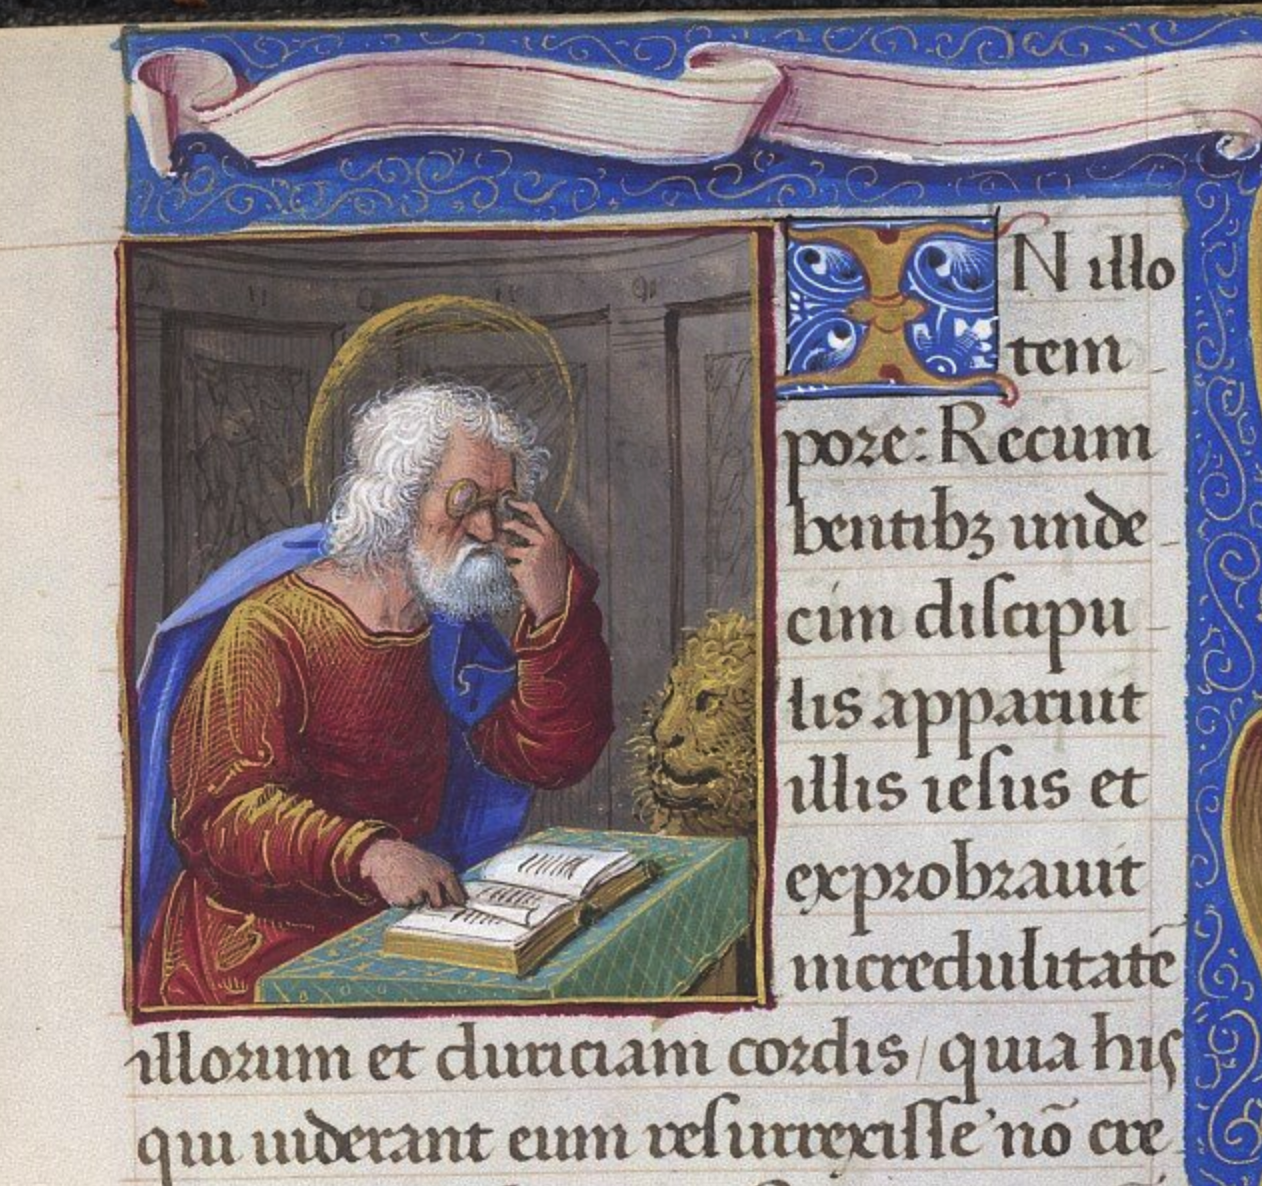 IN illo
tem
pore: Recum
bentibꝫ unde
cim discipu
lis apparuit
illis iesus et
exprobrauit
incredulitatē
illorum et duriciam cordis / quia his
qui uiderant eum resurrexisse nō cre